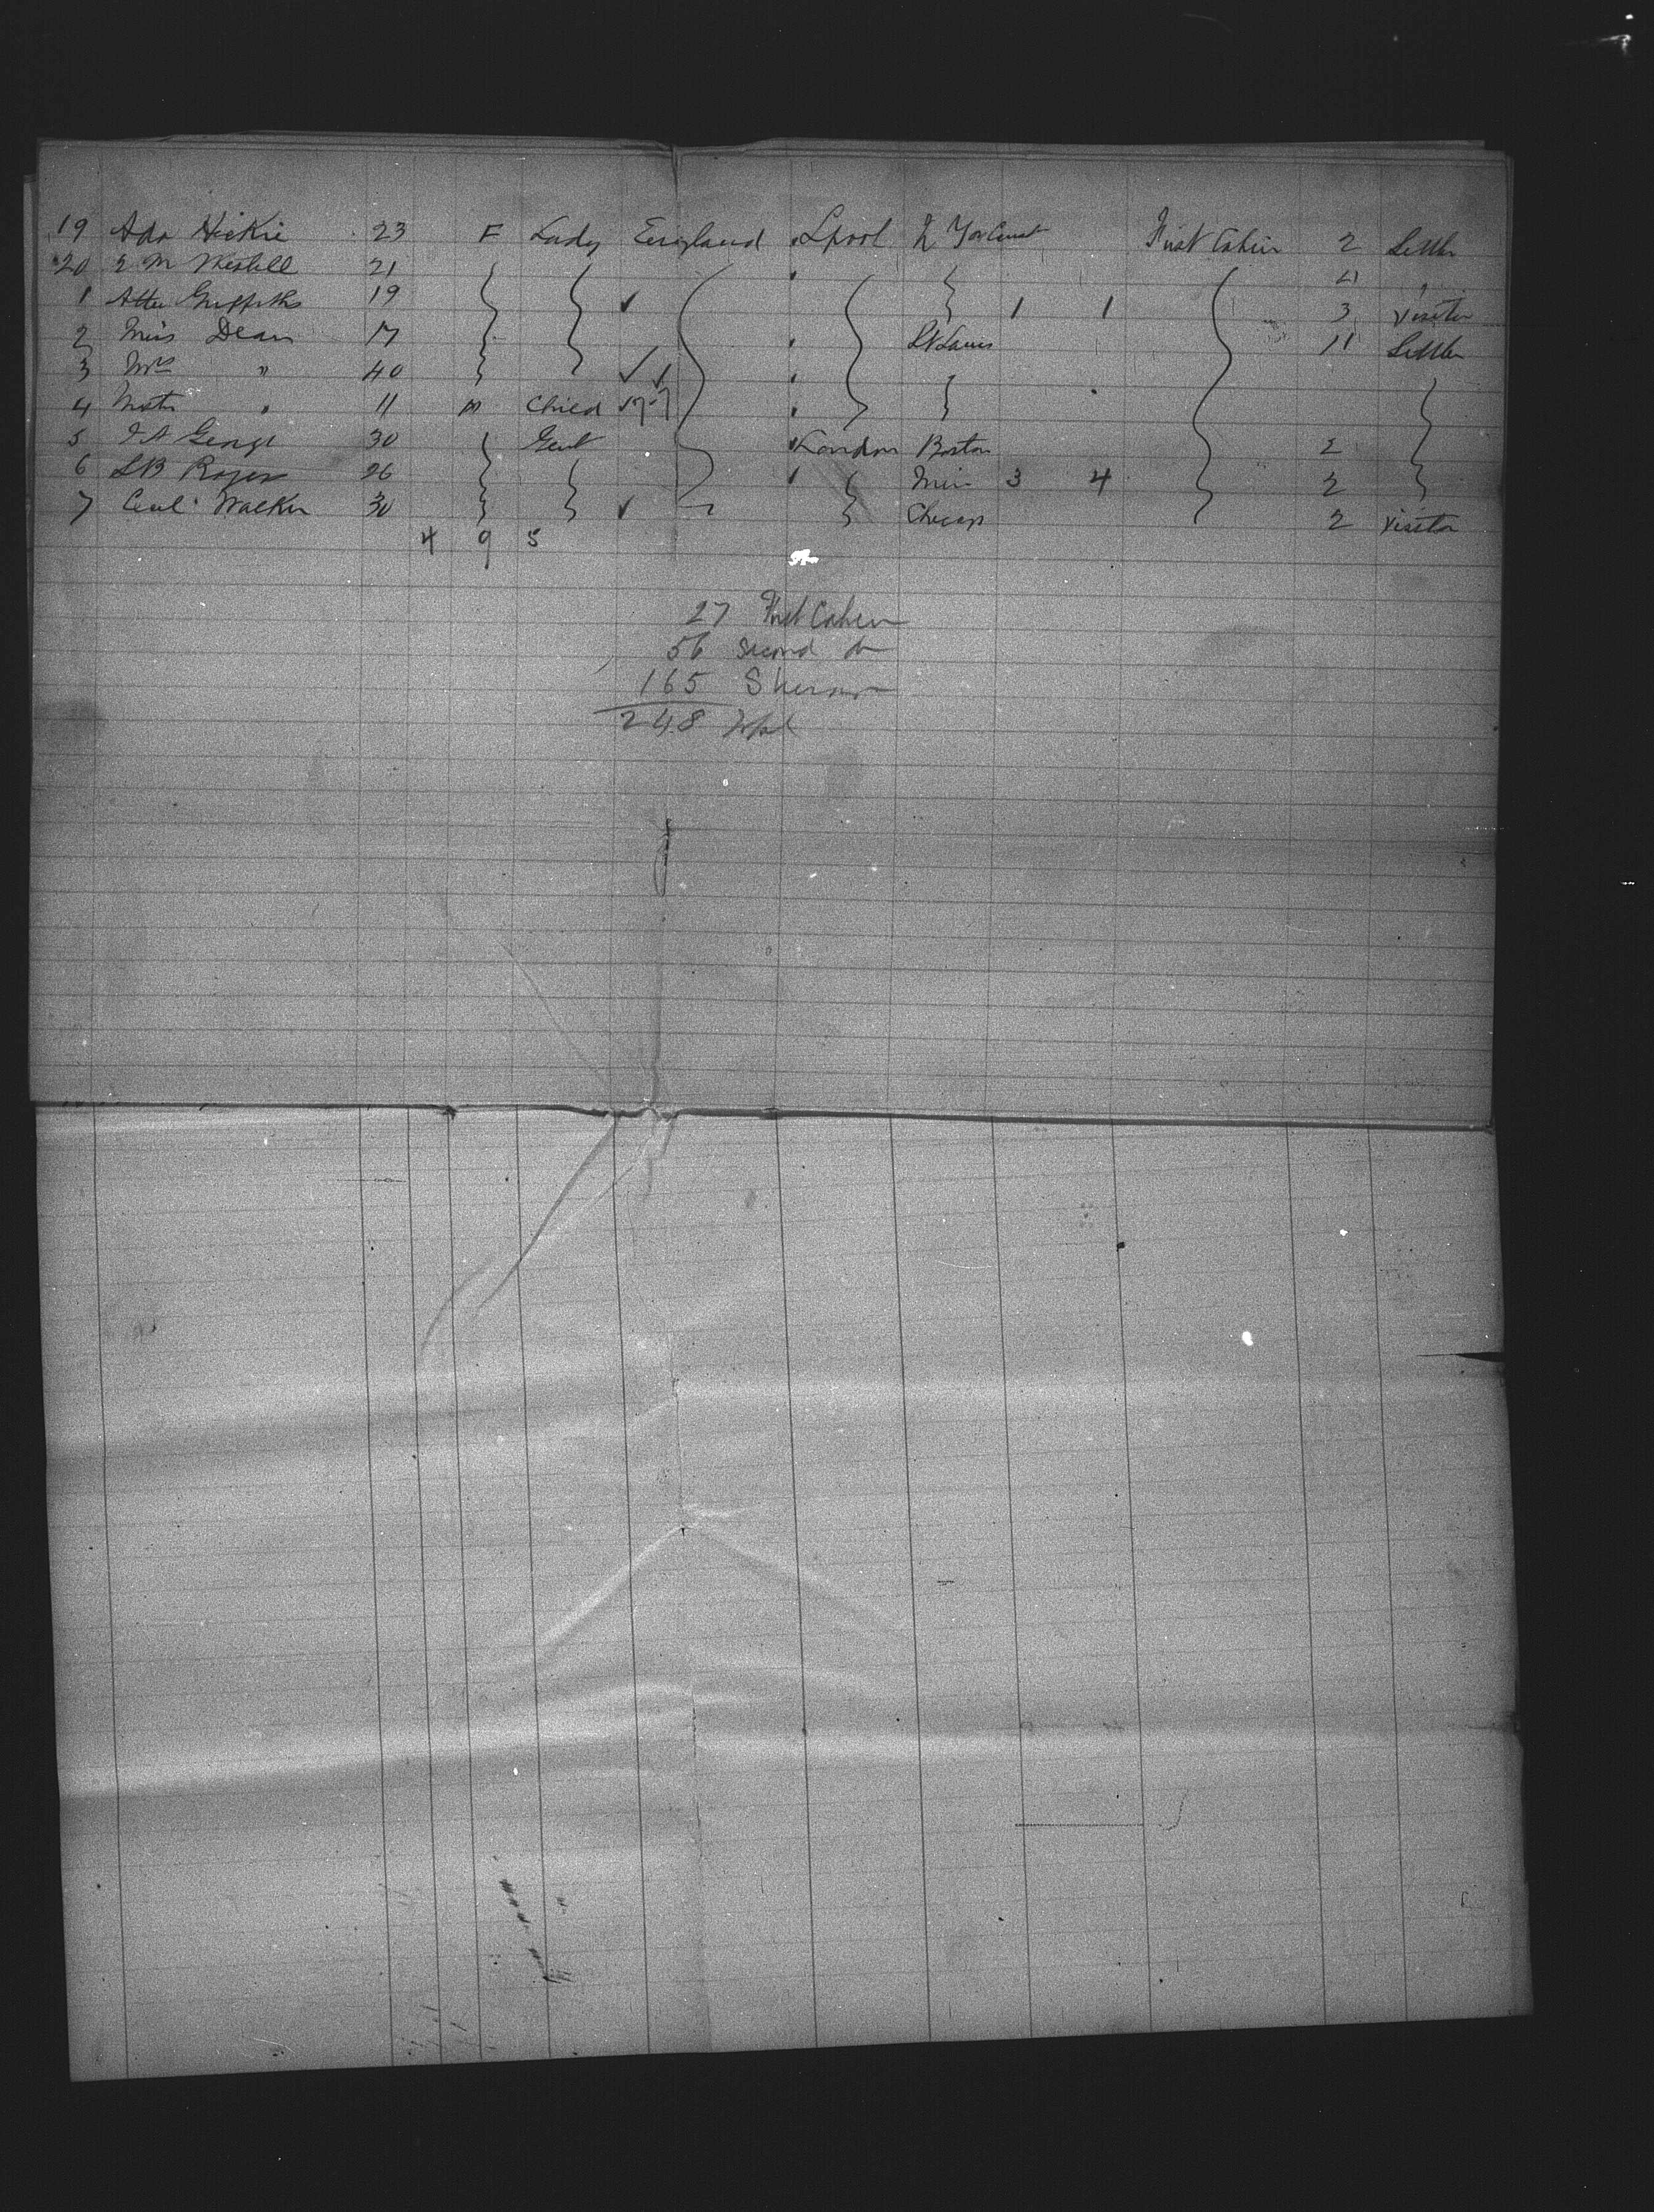 19 Ada Hickie 23 F Lady England Lpool First Cabin 2 Settler
20 E M 21 "
1 Griffiths 19 1 1 3 Visitor
2 Miss Dean 17 St Louis 11 Settler
3 Mrs " 40
4 Mstr " 11 m Child
5 George 30 Gent London Boston 2
6 Rogers 26 3 4 2
7 Walker 30 Chicago 2 Visitor
4 9 5
27 First Cabin
56 Second do
165 Steerage
248 Total